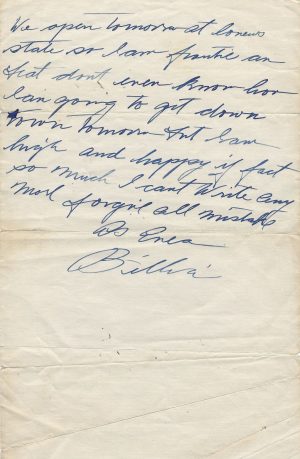 We open tomorrow at Lonews
state so I am frantic an
that dont even know how
I an going to git down
town tomorrow but I am
high and happy if fact
so much I cant write any
more forgive all mistake
As Ever
Billie